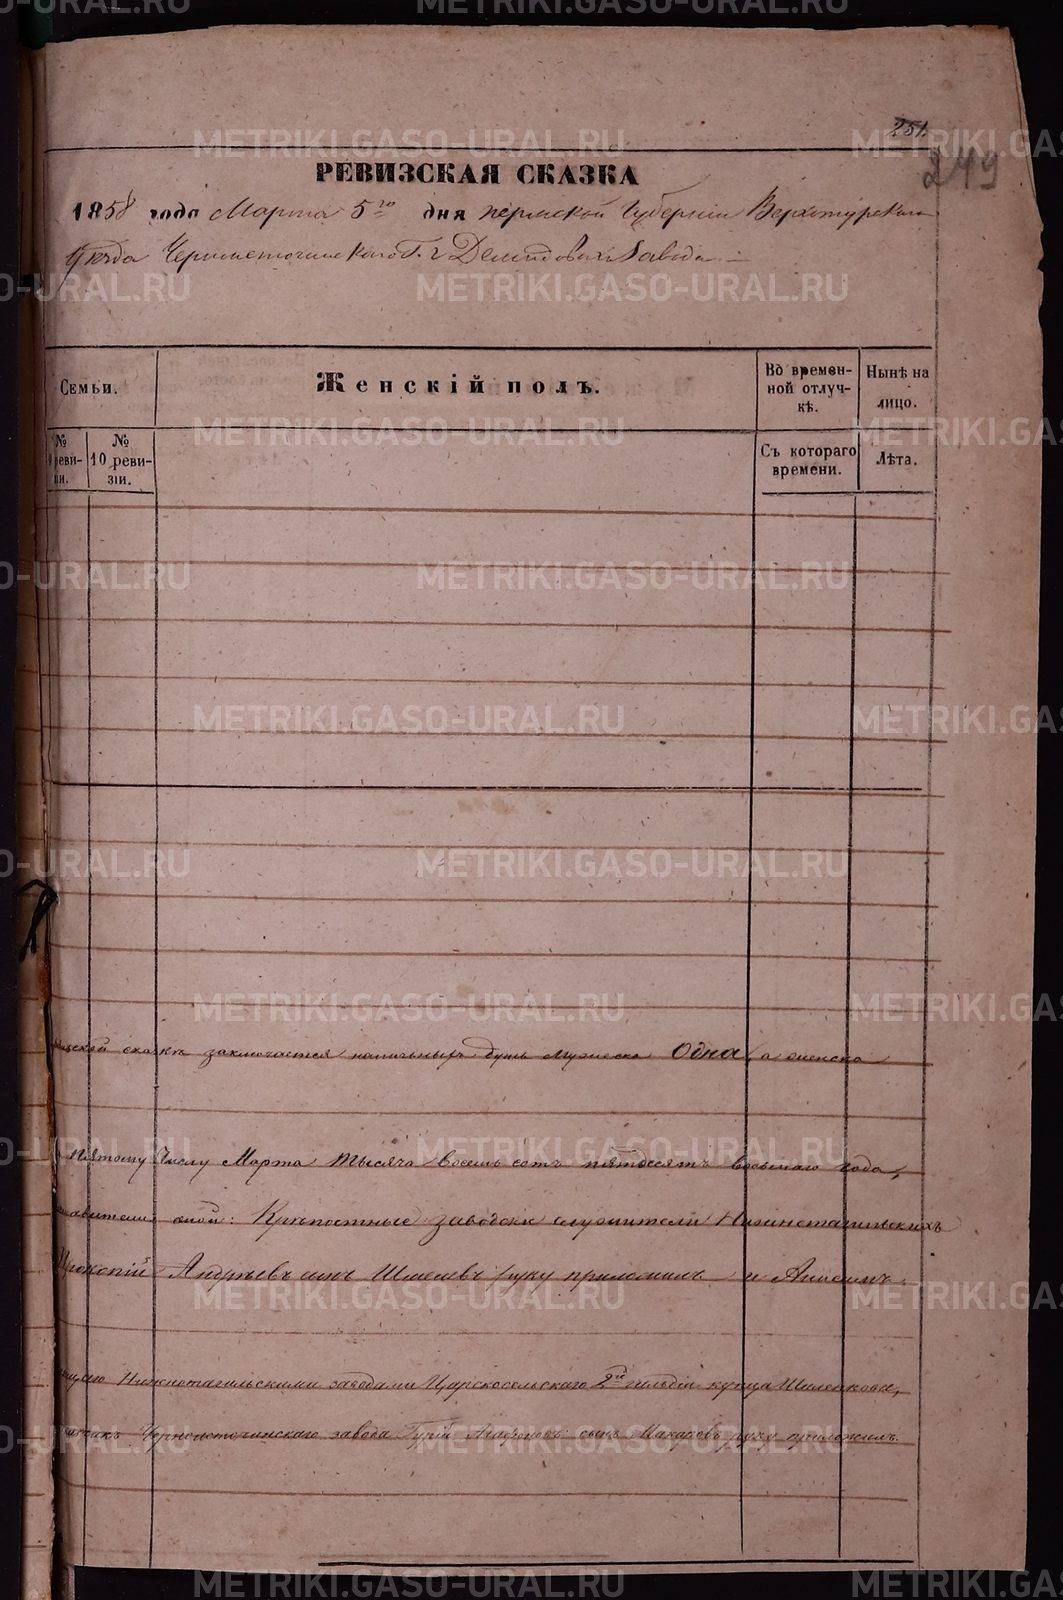 251.
249
РЕВИЗСКАЯ СКАЗКА
1858 года Марта 5го дня Пермской Губерніи Верхотурскаго
Уѣзда Черноисточинскаго Г. г Демидовыхъ Завода
Семьи.
Женскій полъ.
Во времен-
ной отлуч-
кѣ.
Нынѣ на
лицо.
№
реви-
зіи.
№
10 реви-
зіи.
Съ котораго
времени.
Лѣта.
сказкѣ заключается наличныхъ душъ мужеска Одна, а женска
Пятому Числу Марта тысяча восемь сотъ пятдесятъ восьмаго года,
оной: Крѣпостные заводскіе служители Нижнетагильскихъ
Прокопій Андрѣевъ сынъ руку приложилъ и
Нижнетагильскими заводами Царскосельскаго 2й гильдіи купца Шиленкова,
Черноисточинскаго завода Гурій сынъ Макаровъ руку приложилъ.
METRIKI.GASO-URAL.RU